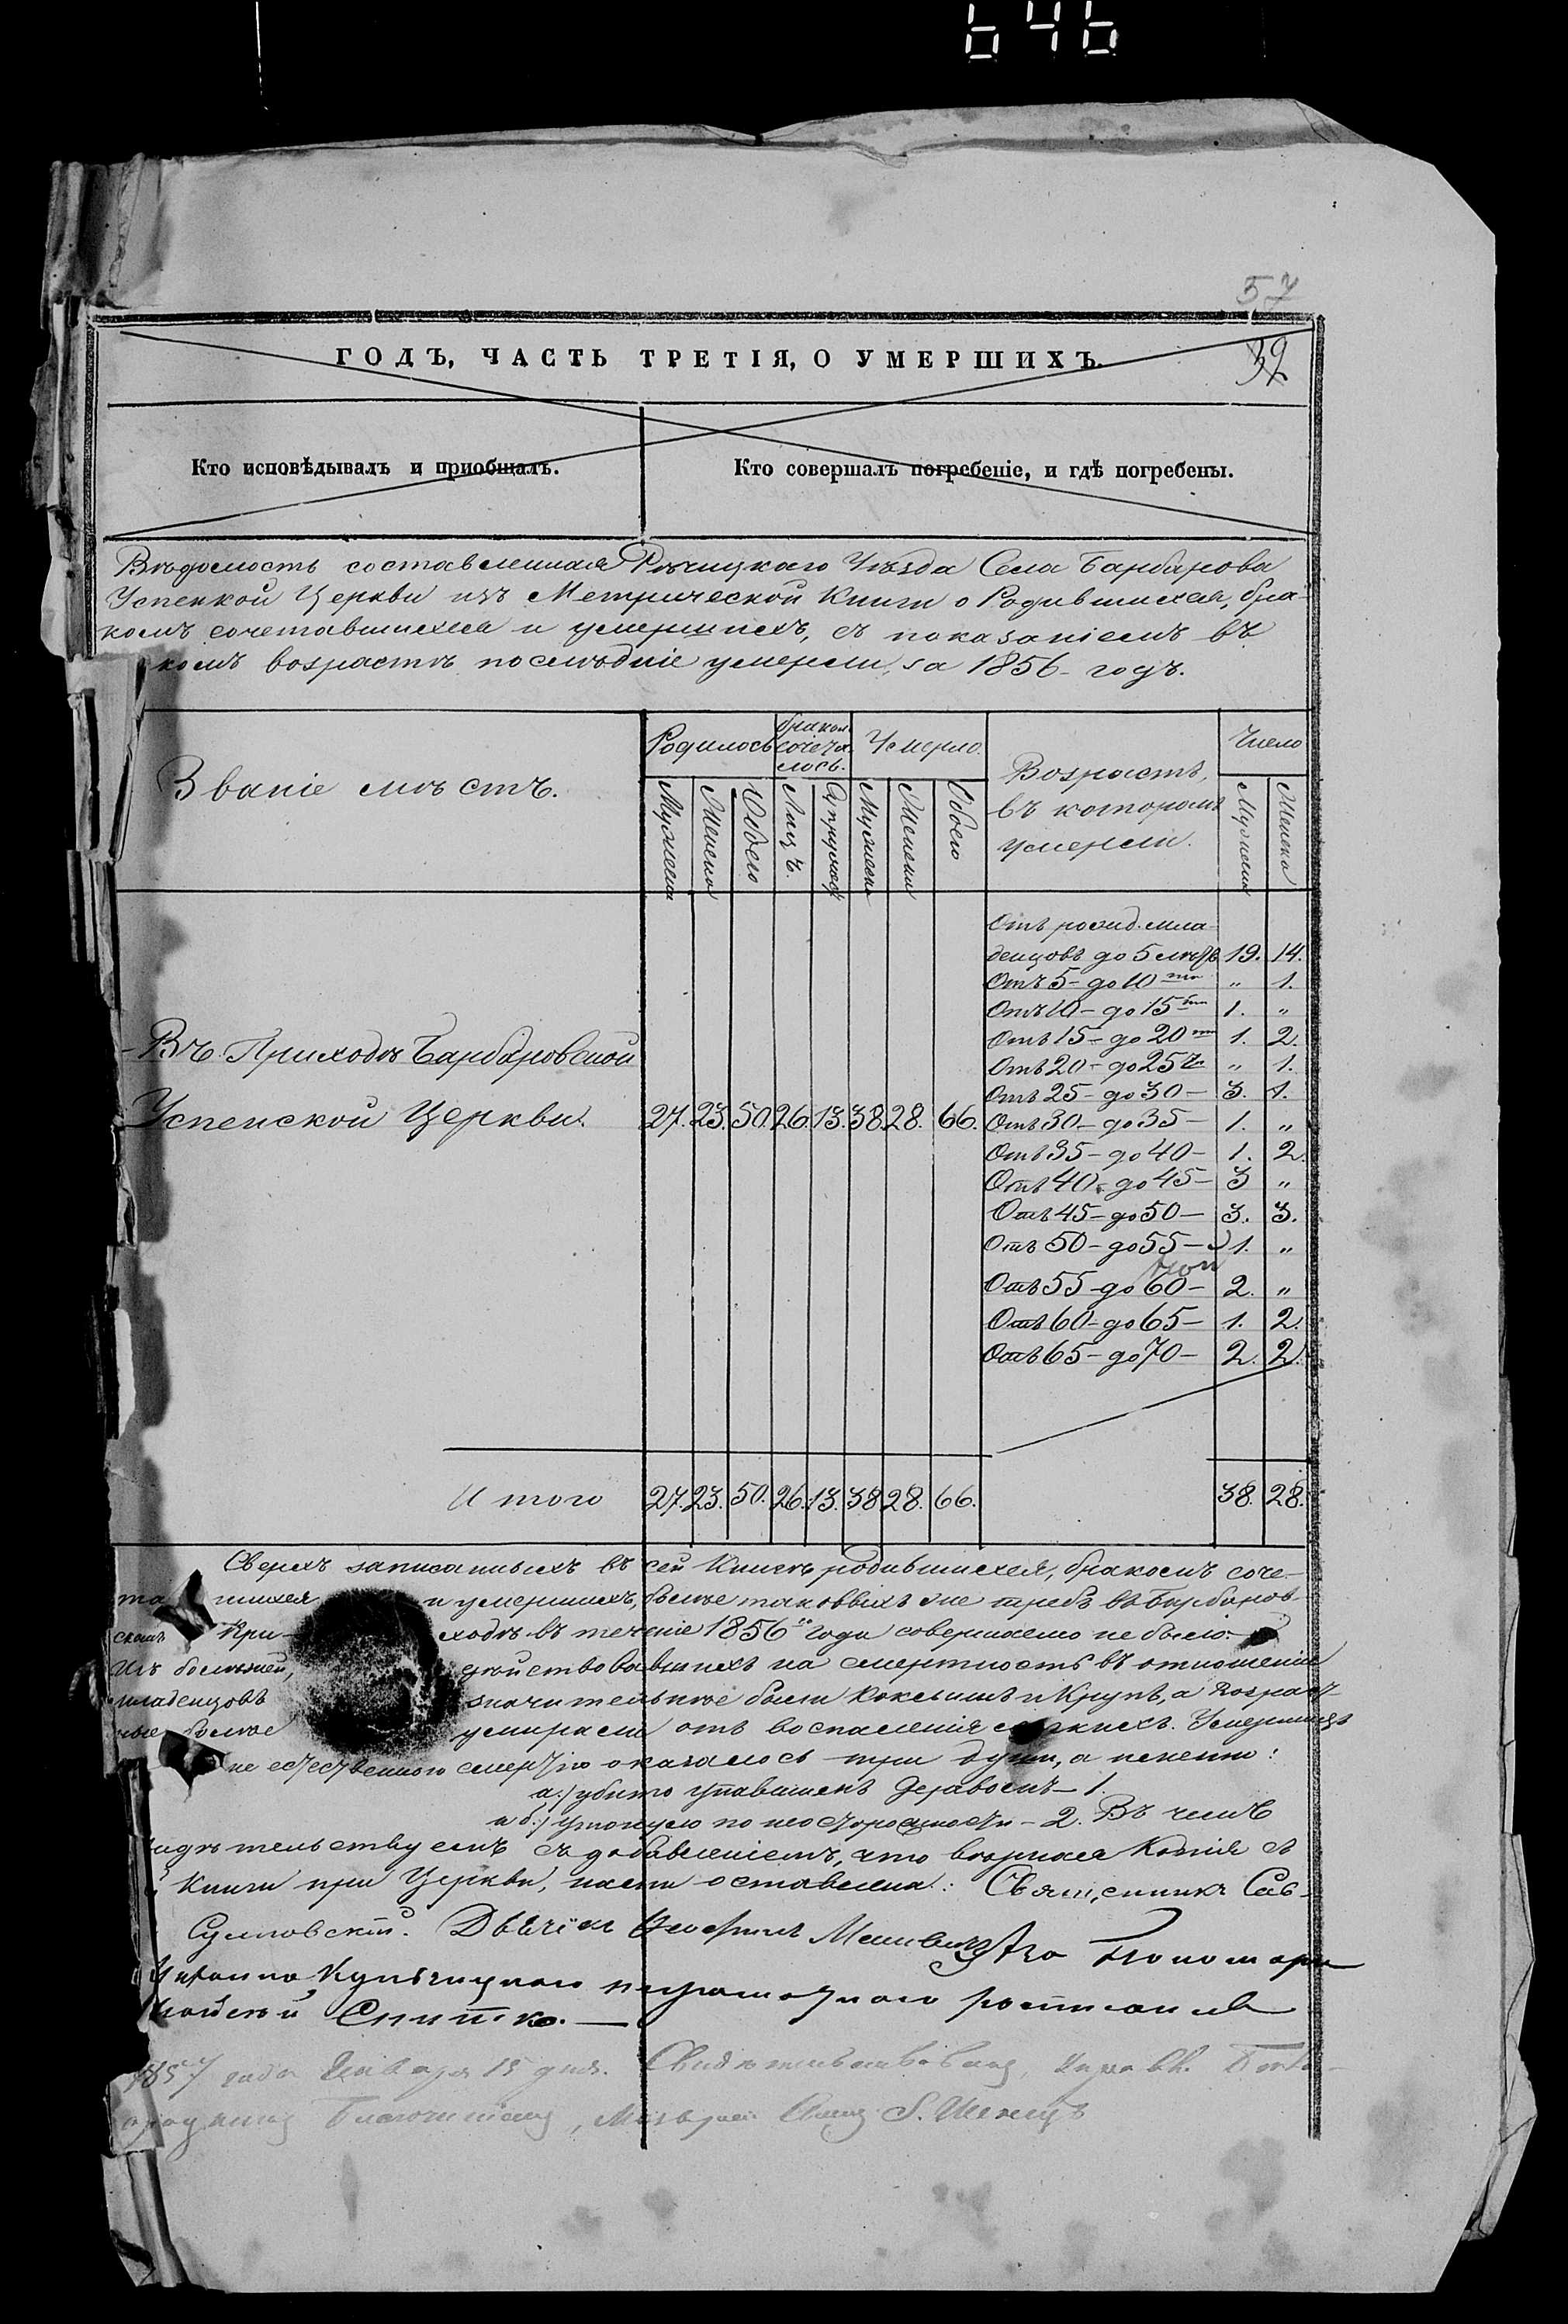 646
57
ГОДЪ, ЧАСТЬ ТРЕТІЯ, О УМЕРШИХЪ.
32
Кто исповѣдывалъ и приобщалъ.
Кто совершалъ погребеніе, и гдѣ погребены.
Вѣдомость составленная Рѣчицкаго Уѣзда Села Барбарова
Успенкой Церкви изъ Метрической Книги о Родившихся, бра-
комъ сочетавшихся и умершихъ, съ показаніемъ въ
комъ возрастѣ послѣдніе умерли, за 1856 годъ.
Званіе мѣстъ.
Родилось
бракомъ сочета-лось.
Умерло.
Возрастъ, въ которомъ умерли.
Число
Мужеска
Женска
Обоего
Лицъ
Мужеска
Женска
Обоего
Мужеска
Женска
Отъ рожд. мла-
денцовъ до 5 лѣтъ 19. 14.
Отъ 5 - до 10 „ 1.
Отъ 10 - до 15 1. „
Отъ 15 - до 20 1. 2.
Отъ 20 - до 25 „ 1.
Отъ 25 - до 30 - 3. 1.
Отъ 30 - до 35 - 1. „
Отъ 35 - до 40 - 1. 2.
Отъ 40 - до 45 - 3 „
Отъ 45 - до 50 - 3. 3.
Отъ 50 - до 55 - 1. „
Отъ 55 - до 60 - 2. „
Отъ 60 - до 65 - 1. 2.
Отъ 65 - до 70 - 2. 2.
Въ Приходѣ Барбаровской
Успенской Церкви. 27. 23. 50. 26. 13. 38. 28. 66.
Итого 27. 23. 50. 26. 13. 38. 28. 66. 38. 28.
Сверхъ записанныхъ въ сей Книгѣ родившихся, бракомъ соче-
та шихся и умершихъ, болѣе таковыхъ же требъ въ Барбаров-
скомъ При- ходѣ въ теченіе 1856 года совершаемо не было.
Изъ болѣзней, дѣйствовавшихъ на смертность въ отношеніи
младенцовъ значительнѣе были Коклюшъ и Крупъ, а возраст-
ные болѣе умирали отъ воспаленія легкихъ. Умершихъ
не естественною смертію оказалось три души, а именно:
а.) убито упавшимъ деревомъ - 1.
и б.) утонуло по неосторожности - 2. Въ чемъ
идѣтельствуемъ съ добавленіемъ, что вѣрная Копія съ
Книги при Церкви, нами оставлена: Священникъ
Сулковскій.
Пономаря
неграмотнаго
1857 года Января 15 дня.